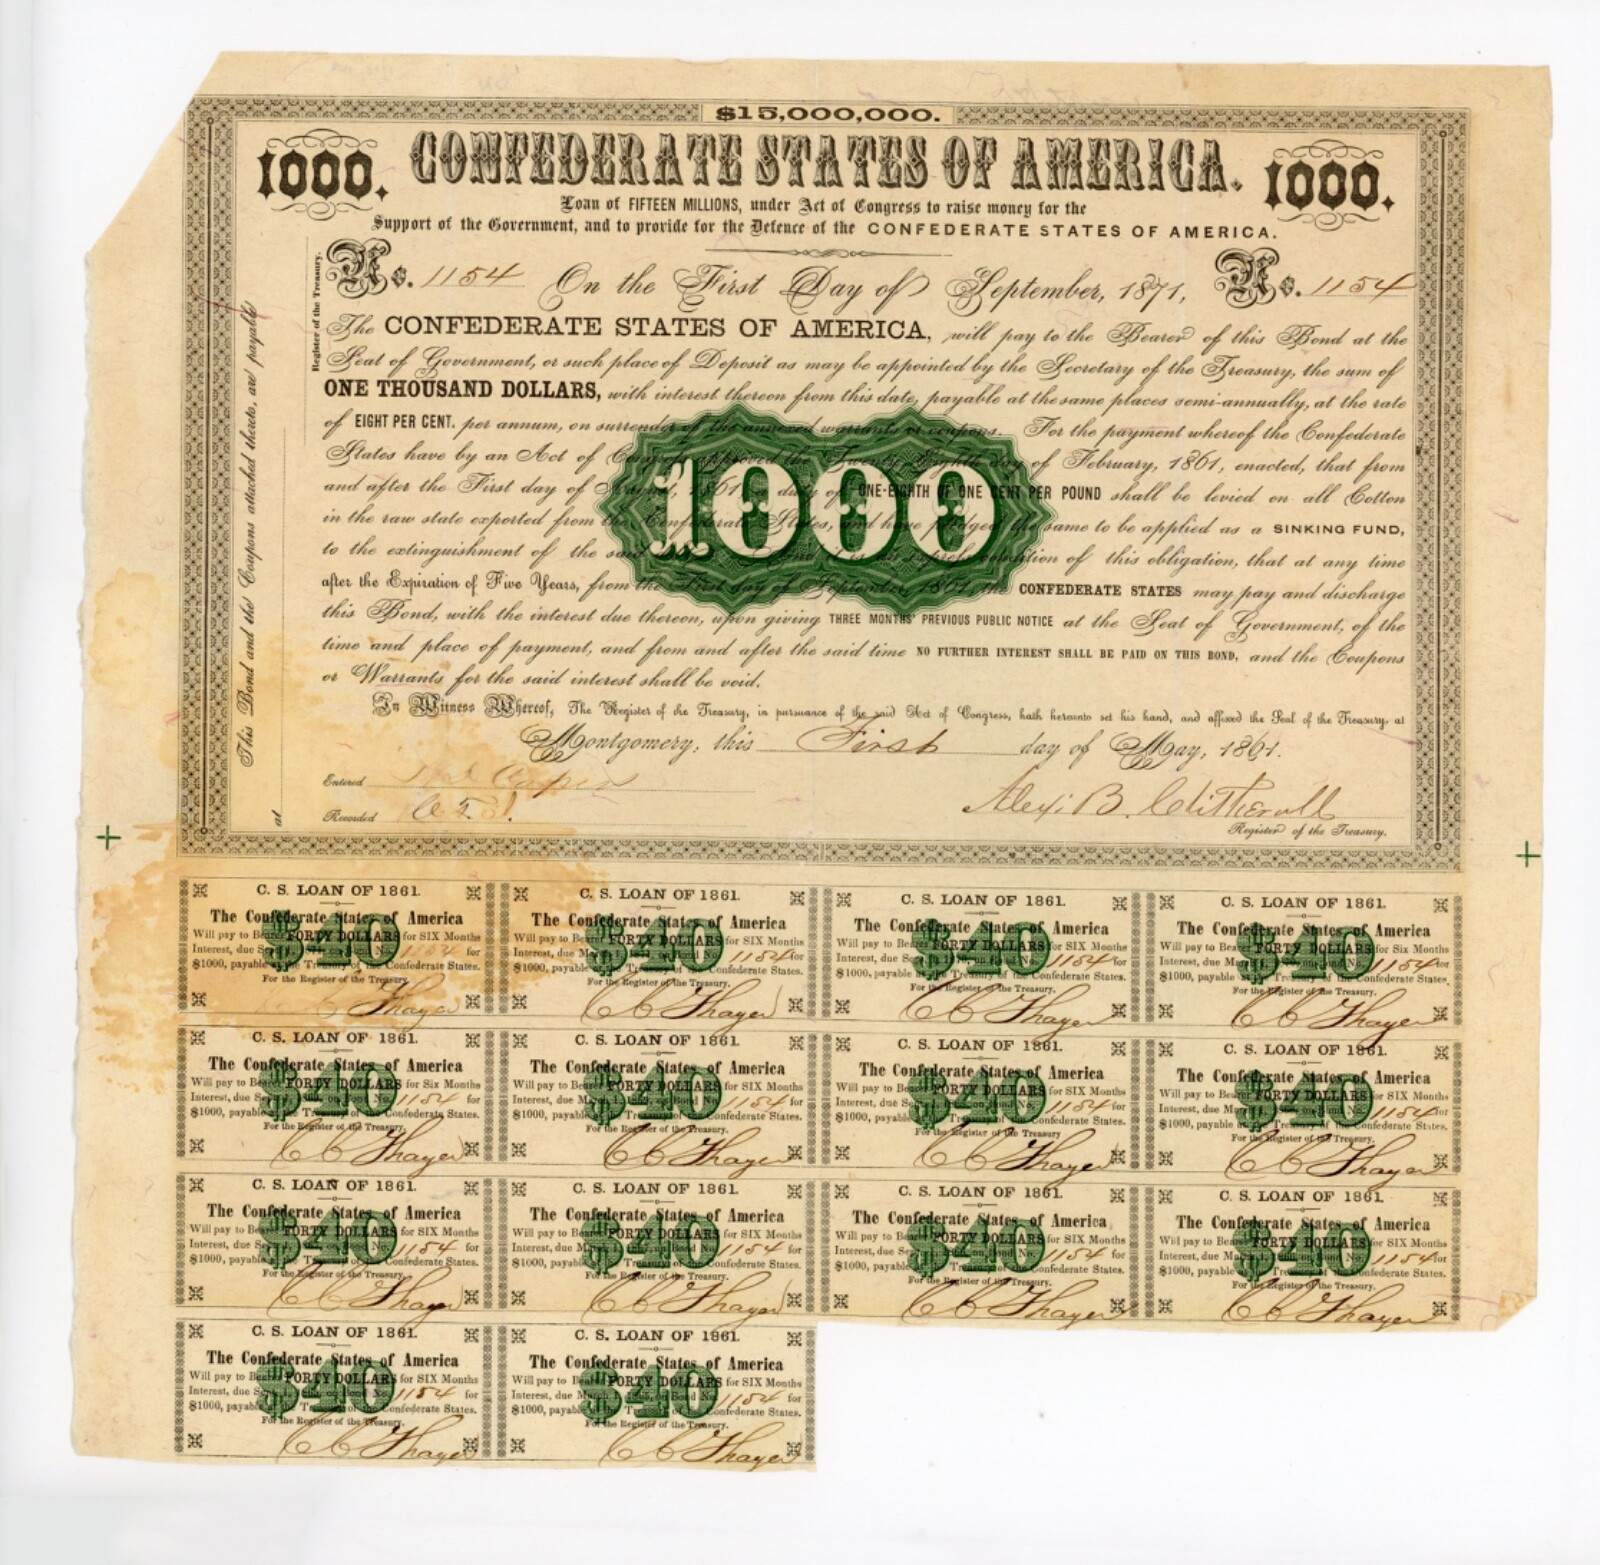 $15,000,000.
1000. CONFEDERATE STATES OF AMERICA. 1000.
Loan of FIFTEEN MILLIONS, under Act of Congress to raise money for the
Support of the Government, and to provide for the Defence of the CONFEDERATE STATES OF AMERICA.
No. 1154 On the First Day of September, 1871, No. 1154
The CONFEDERATE STATES OF AMERICA, will pay to the Bearer of this Bond at the
Seat of Government, or such place of Deposit as may be appointed by the Secretary of the Treasury, the sum of
ONE THOUSAND DOLLARS, with interest thereon from this date, payable at the same places semi-annually, at the rate
of EIGHT PER CENT. per annum, on surrender of the annexed warrants or coupons. For the payment whereof the Confederate
States have by an Act of Congress approved the Twenty Eighth day of February, 1861, enacted, that from
and after the First day of August, 1861, a duty of ONE-EIGHTH OF ONE CENT PER POUND shall be levied on all Cotton
in the raw state exported from the Confederate States, and have pledged the same to be applied as a SINKING FUND,
to the extinguishment of the said Bond it is an express condition of this obligation, that at any time
after the Expiration of Five Years, from the First day of September, 1861, the CONFEDERATE STATES may pay and discharge
this Bond, with the interest due thereon, upon giving THREE MONTHS' PREVIOUS PUBLIC NOTICE at the Seat of Government, of the
time and place of payment, and from and after the said time NO FURTHER INTEREST SHALL BE PAID ON THIS BOND, and the Coupons
or Warrants for the said interest shall be void.
1000
In Witness Whereof, The Register of the Treasury, in pursuance of the said Act of Congress, hath hereunto set his hand, and affixed the Seal of the Treasury, at
Montgomery, this First day of May, 1861.
Entered
Recorded C. T. J.
Alex. B. Clitherall
Register of the Treasury.
This Bond and the Coupons attached thereto, are payable
at
Register of the Treasury.
C. S. LOAN OF 1861.
The Confederate States of America
Will pay to Bearer FORTY DOLLARS for SIX Months
Interest, due 1154 for
$1000, payable at the Treasury of the Confederate States.
For the Register of the Treasury.
$40
C C Thayer
C. S. LOAN OF 1861.
The Confederate States of America
Will pay to Bearer FORTY DOLLARS for SIX Months
Interest, due March 1871, on Bond No. 1154 for
$1000, payable at the Treasury of the Confederate States.
For the Register of the Treasury.
$40
C C Thayer
C. S. LOAN OF 1861.
The Confederate States of America
Will pay to Bearer FORTY DOLLARS for SIX Months
Interest, due on Bond No. 1154 for
$1000, payable at the Treasury of the Confederate States.
For the Register of the Treasury.
$40
C C Thayer
C. S. LOAN OF 1861.
The Confederate States of America
Will pay to Bearer FORTY DOLLARS for Six Months
Interest, due on Bond No. 1154 for
$1000, payable at the Treasury of the Confederate States.
For the Register of the Treasury.
$40
C C Thayer
C. S. LOAN OF 1861.
The Confederate States of America
Will pay to Bearer FORTY DOLLARS for Six Months
Interest, due on Bond No. 1154 for
$1000, payable at the Treasury of the Confederate States.
For the Register of the Treasury.
$40
C C Thayer
C. S. LOAN OF 1861.
The Confederate States of America
Will pay to Bearer FORTY DOLLARS for SIX Months
Interest, due on Bond No. 1154 for
$1000, payable at the Treasury of the Confederate States.
For the Register of the Treasury.
$40
C C Thayer
C. S. LOAN OF 1861.
The Confederate States of America
Will pay to Bearer FORTY DOLLARS for SIX Months
Interest, due on Bond No. 1154 for
$1000, payable at the Treasury of the Confederate States.
For the Register of the Treasury
$40
C C Thayer
C. S. LOAN OF 1861.
The Confederate States of America
Will pay to Bearer FORTY DOLLARS for SIX Months
Interest, due on Bond No. 1154 for
$1000, payable at the Treasury of the Confederate States.
For the Register of the Treasury.
$40
C C Thayer
C. S. LOAN OF 1861.
The Confederate States of America
Will pay to Bearer FORTY DOLLARS for SIX Months
Interest, due on Bond No. 1154 for
$1000, payable at the Treasury of the Confederate States.
For the Register of the Treasury.
$40
C C Thayer
C. S. LOAN OF 1861.
The Confederate States of America
Will pay to Bearer FORTY DOLLARS for SIX Months
Interest, due on Bond No. 1154 for
$1000, payable at the Treasury of the Confederate States.
For the Register of the Treasury.
$40
C C Thayer
C. S. LOAN OF 1861.
The Confederate States of America
Will pay to Bearer FORTY DOLLARS for SIX Months
Interest, due on Bond No. 1154 for
$1000, payable at the Treasury of the Confederate States.
For the Register of the Treasury.
$40
C C Thayer
C. S. LOAN OF 1861.
The Confederate States of America
Will pay to Bearer FORTY DOLLARS for SIX Months
Interest, due on Bond No. 1154 for
$1000, payable at the Treasury of the Confederate States.
For the Register of the Treasury.
$40
C C Thayer
C. S. LOAN OF 1861.
The Confederate States of America
Will pay to Bearer FORTY DOLLARS for SIX Months
Interest, due on Bond No. 1154 for
$1000, payable at the Treasury of the Confederate States.
For the Register of the Treasury.
$40
C C Thayer
C. S. LOAN OF 1861.
The Confederate States of America
Will pay to Bearer FORTY DOLLARS for SIX Months
Interest, due on Bond No. 1154 for
$1000, payable at the Treasury of the Confederate States.
For the Register of the Treasury.
$40
C C Thayer